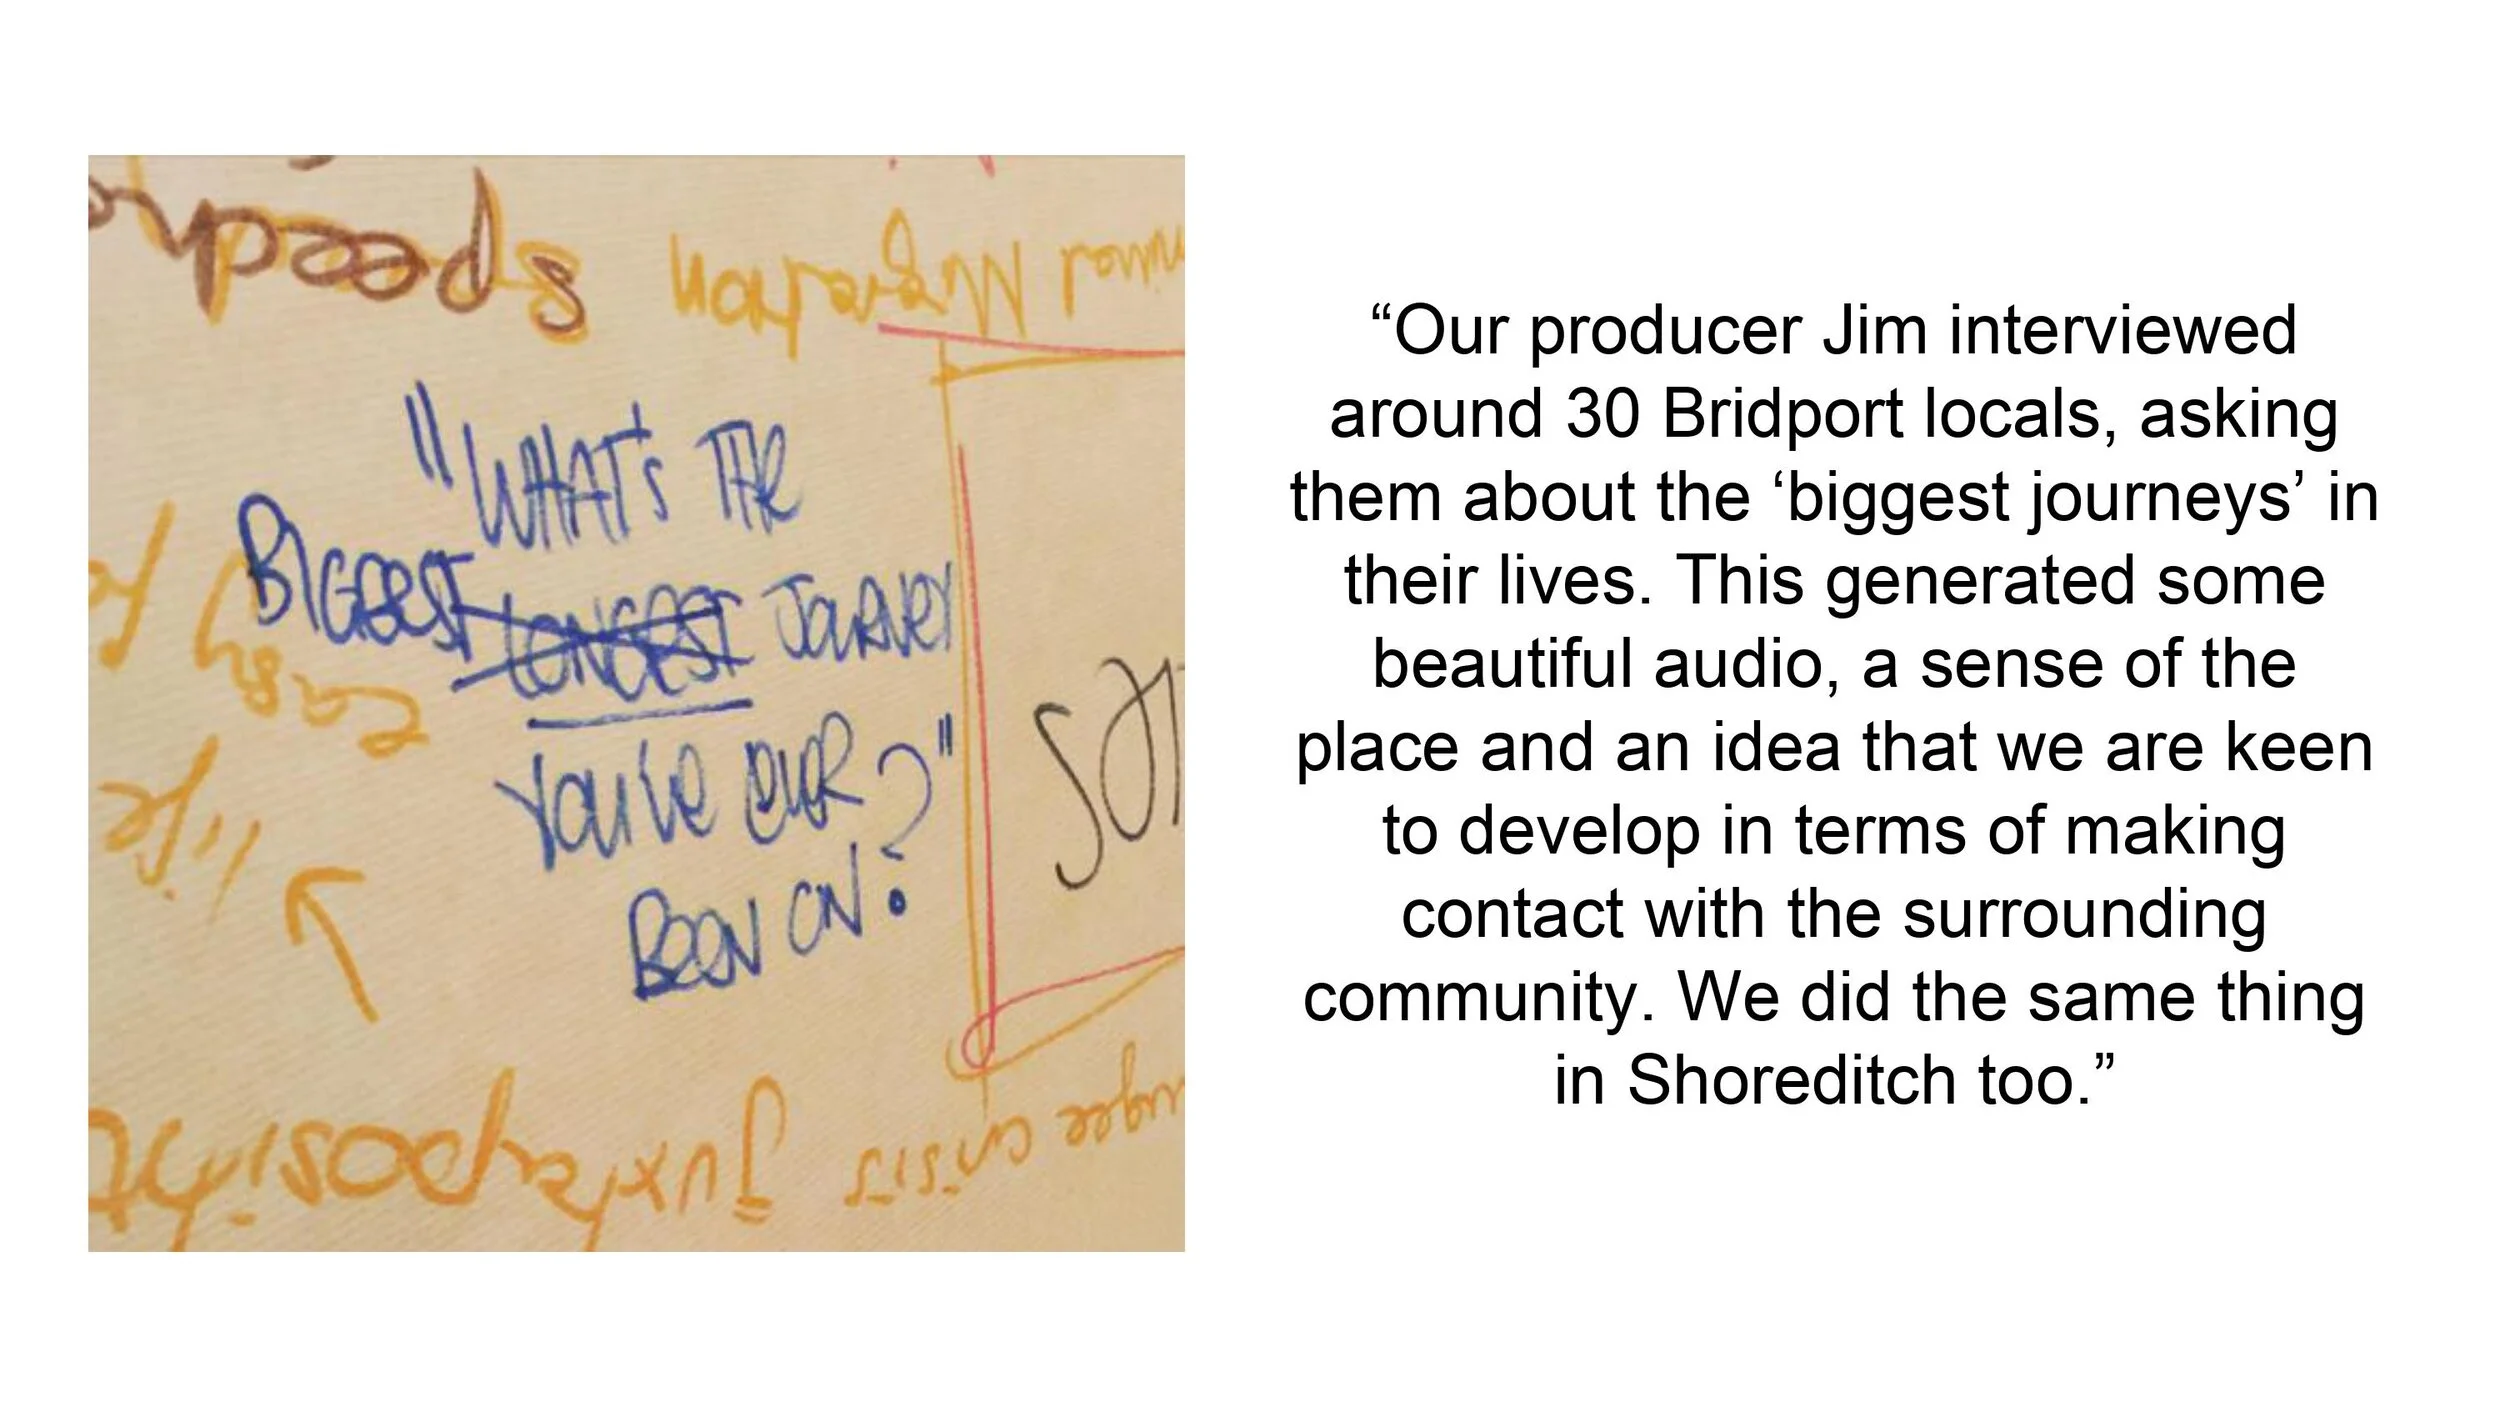 speech
Migration
"WHAT'S THE
BIGGEST LONGEST JOURNEY
YOU'VE EVER
BEEN ON?"
easy
life
Juxtaposition
crisis
“Our producer Jim interviewed
around 30 Bridport locals, asking
them about the ‘biggest journeys’ in
their lives. This generated some
beautiful audio, a sense of the
place and an idea that we are keen
to develop in terms of making
contact with the surrounding
community. We did the same thing
in Shoreditch too.”